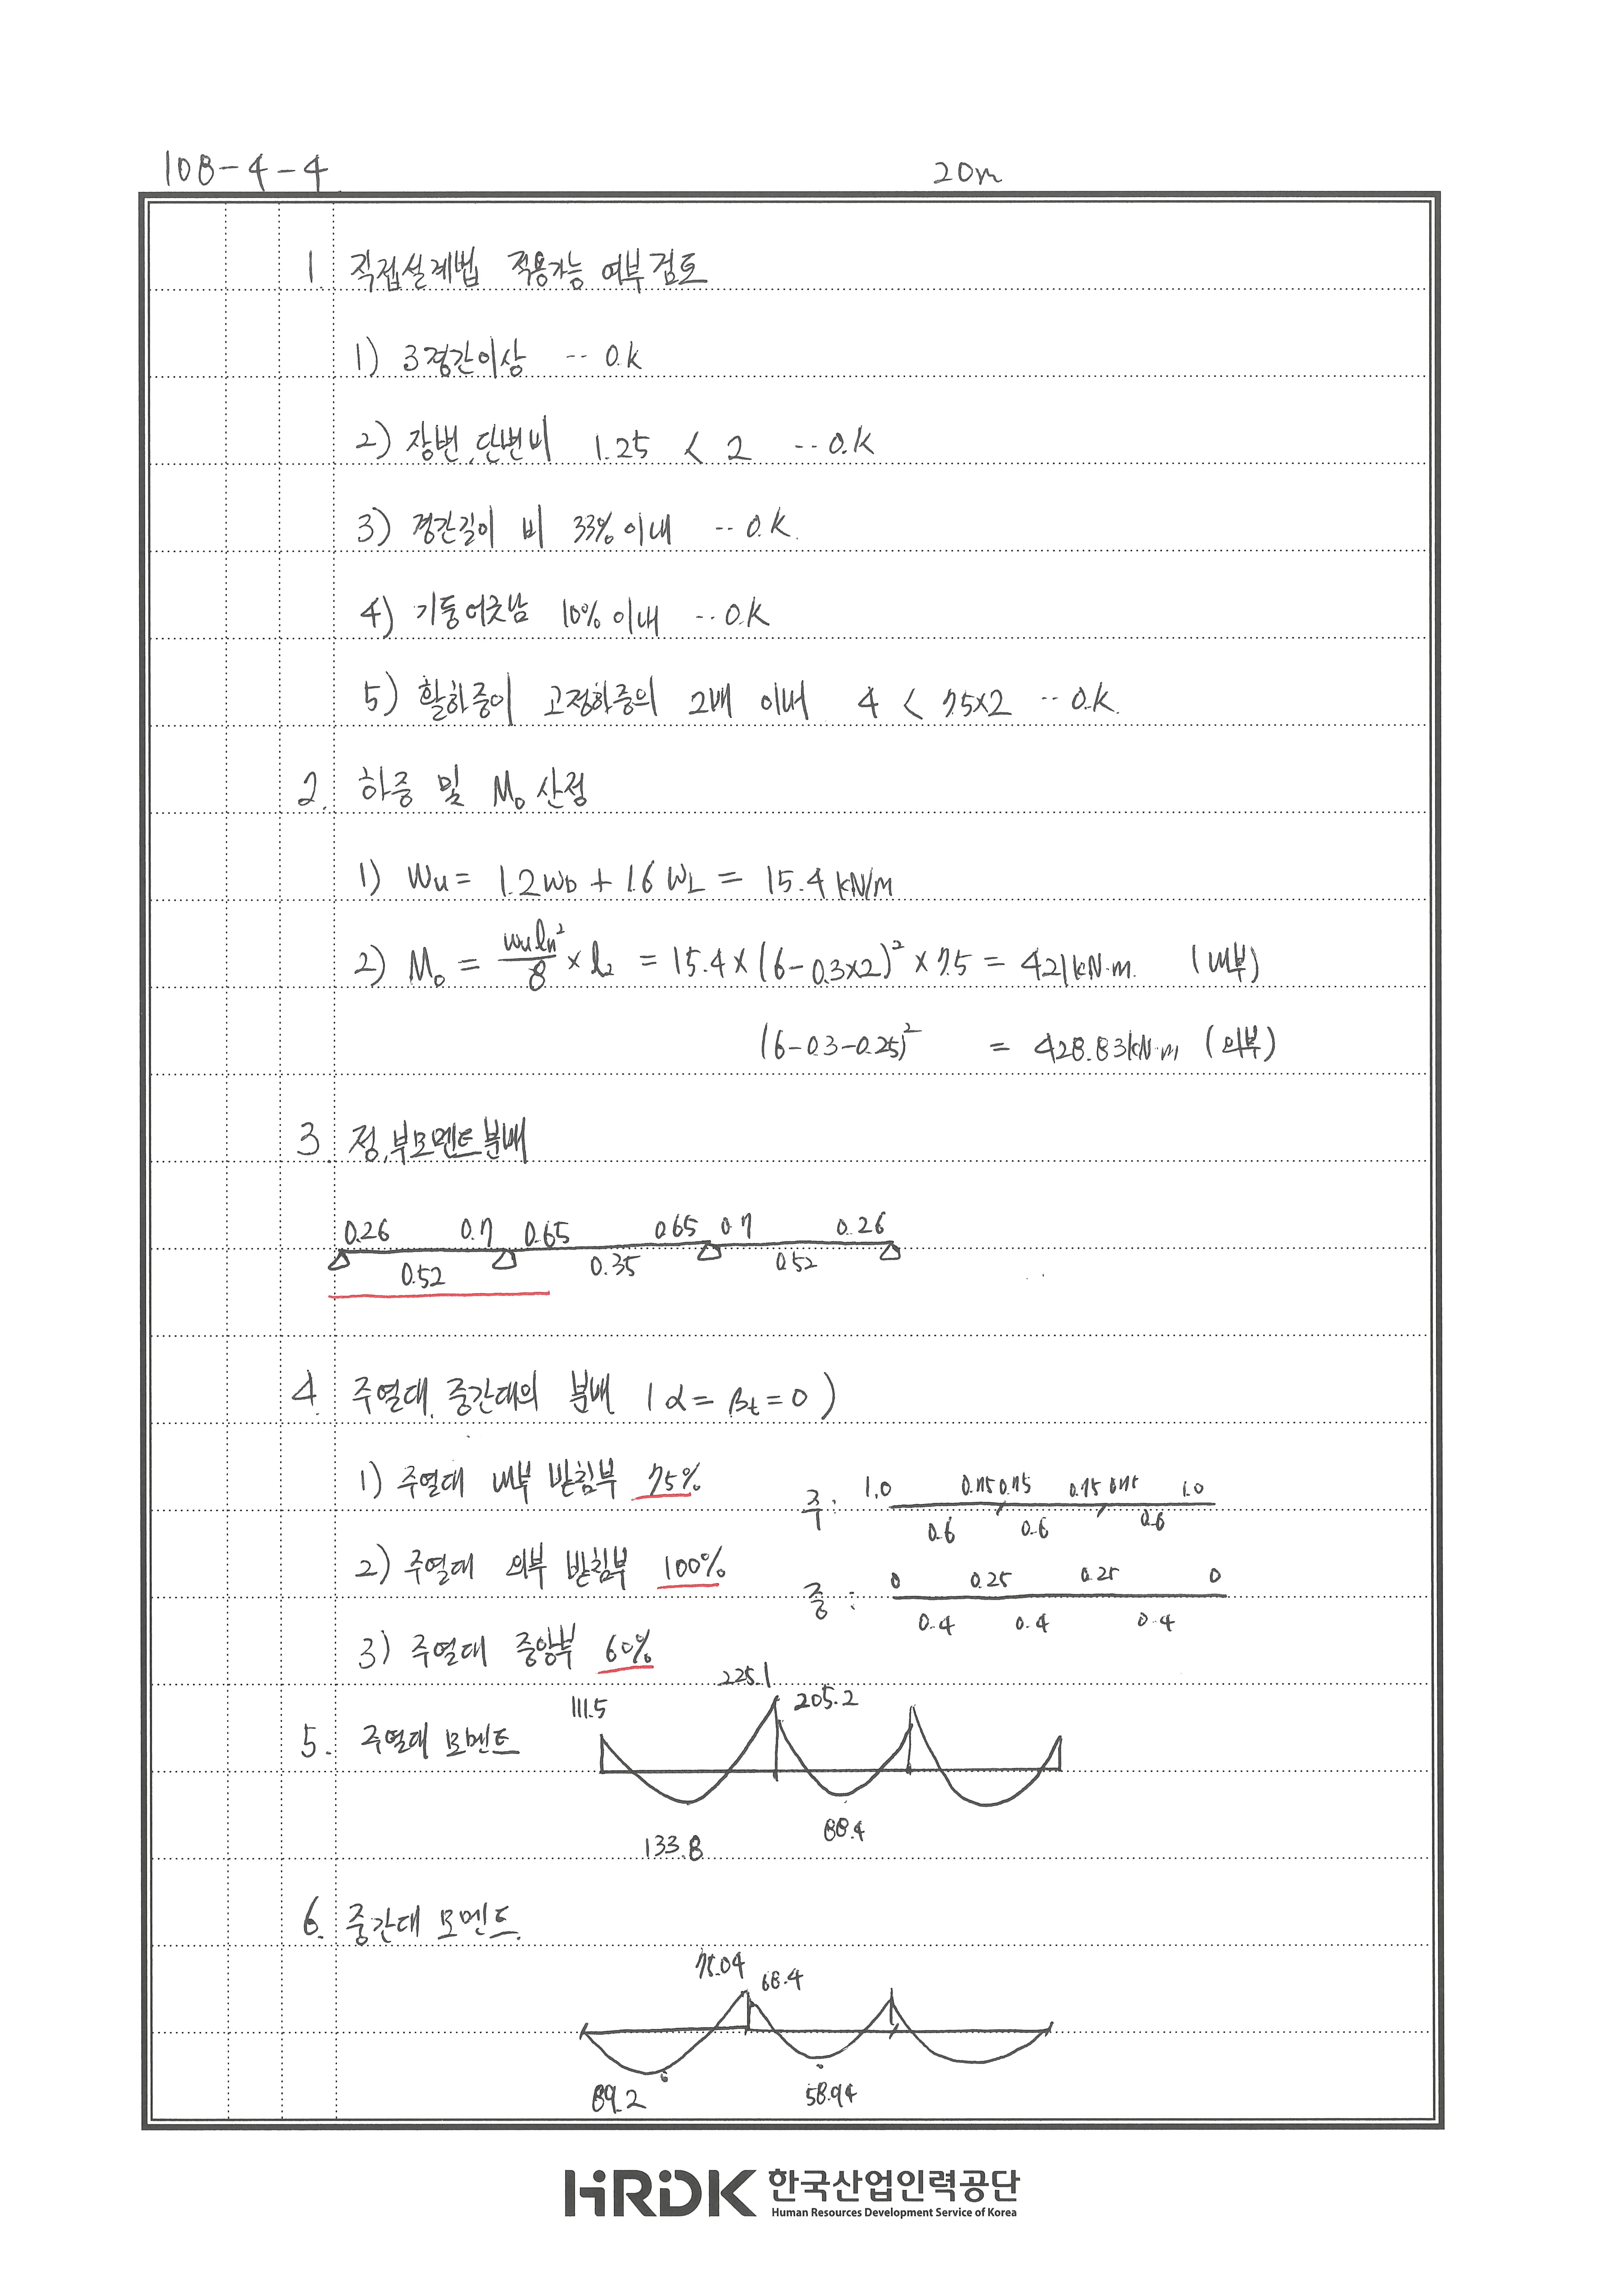 108-4-4 20m
1. 직접설계법 적용가능 여부검토
1) 3경간이상 -- O.K
2) 장변,단변비 1.25 < 2 -- O.K
3) 경간길이 비 33%이내 -- O.K.
4) 기둥어긋남 10%이내 -- O.K
5) 활하중이 고정하중의 2배 이내 4 < 7.5×2 -- O.K.
2. 하중 및 M₀ 산정
1) Wu = 1.2WD + 1.6WL = 15.4 kN/m
2) M₀ = wuln²/8 × l₂ = 15.4×(6-0.3×2)²×7.5 = 421kN·m. (내부)
(6-0.3-0.25)² = 428.83kN·m (외부)
3. 정,부모멘트분배
0.26 0.7 0.65 0.65 0.7 0.26
0.52 0.35 0.52
4. 주열대, 중간대의 분배 (α = βt = 0)
1) 주열대 내부 받침부 75% 주: 1.0 0.75 0.75 0.75 0.75 1.0
0.6 0.6 0.6
2) 주열대 외부 받침부 100% 중: 0 0.25 0.25 0
0.4 0.4 0.4
3) 주열대 중앙부 60%
5. 주열대 모멘트 111.5 225.1 205.2
133.8 88.4
6. 중간대 모멘트.
75.04 68.4
89.2 58.94
HRDK 한국산업인력공단
Human Resources Development Service of Korea